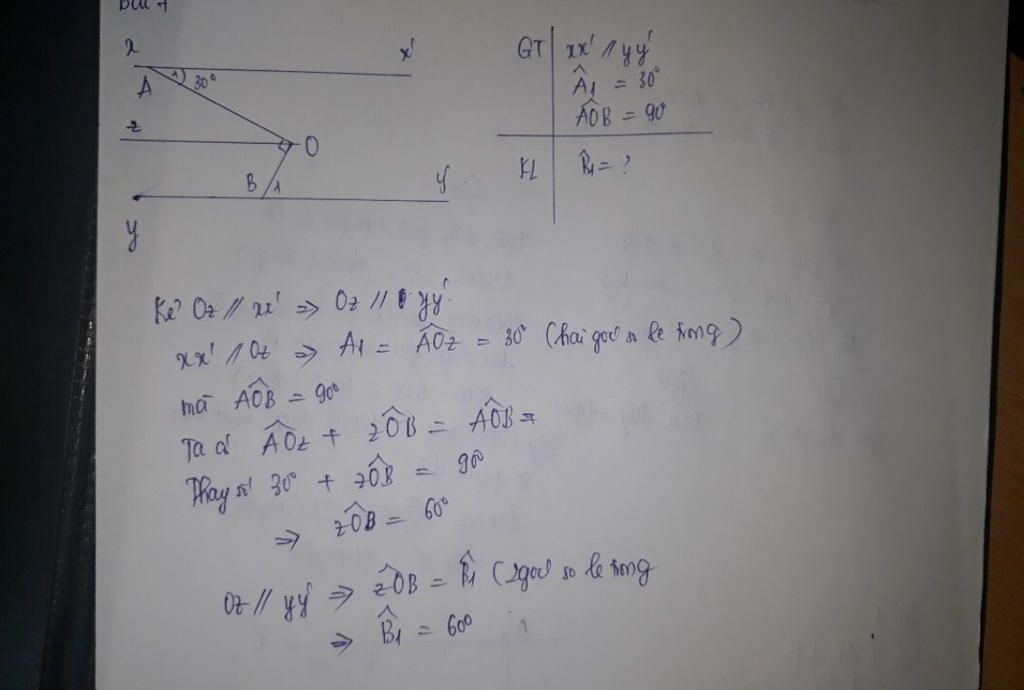 Bài 7
x x'
A 1 30°
z O
B 1 y'
y
GT xx' // yy'
Â1 = 30°
AÔB = 90
KL B̂1 = ?
Kẻ Oz // xx' ⇒ Oz // yy'.
xx' // Oz ⇒ A1 = AÔz = 30° (hai góc so le trong)
mà AÔB = 90°
Ta có AÔz + zÔB = AÔB =
Thay số 30° + zÔB = 90°
⇒ zÔB = 60°
Oz // yy' ⇒ zÔB = B̂1 (2 góc so le trong
⇒ B̂1 = 60°